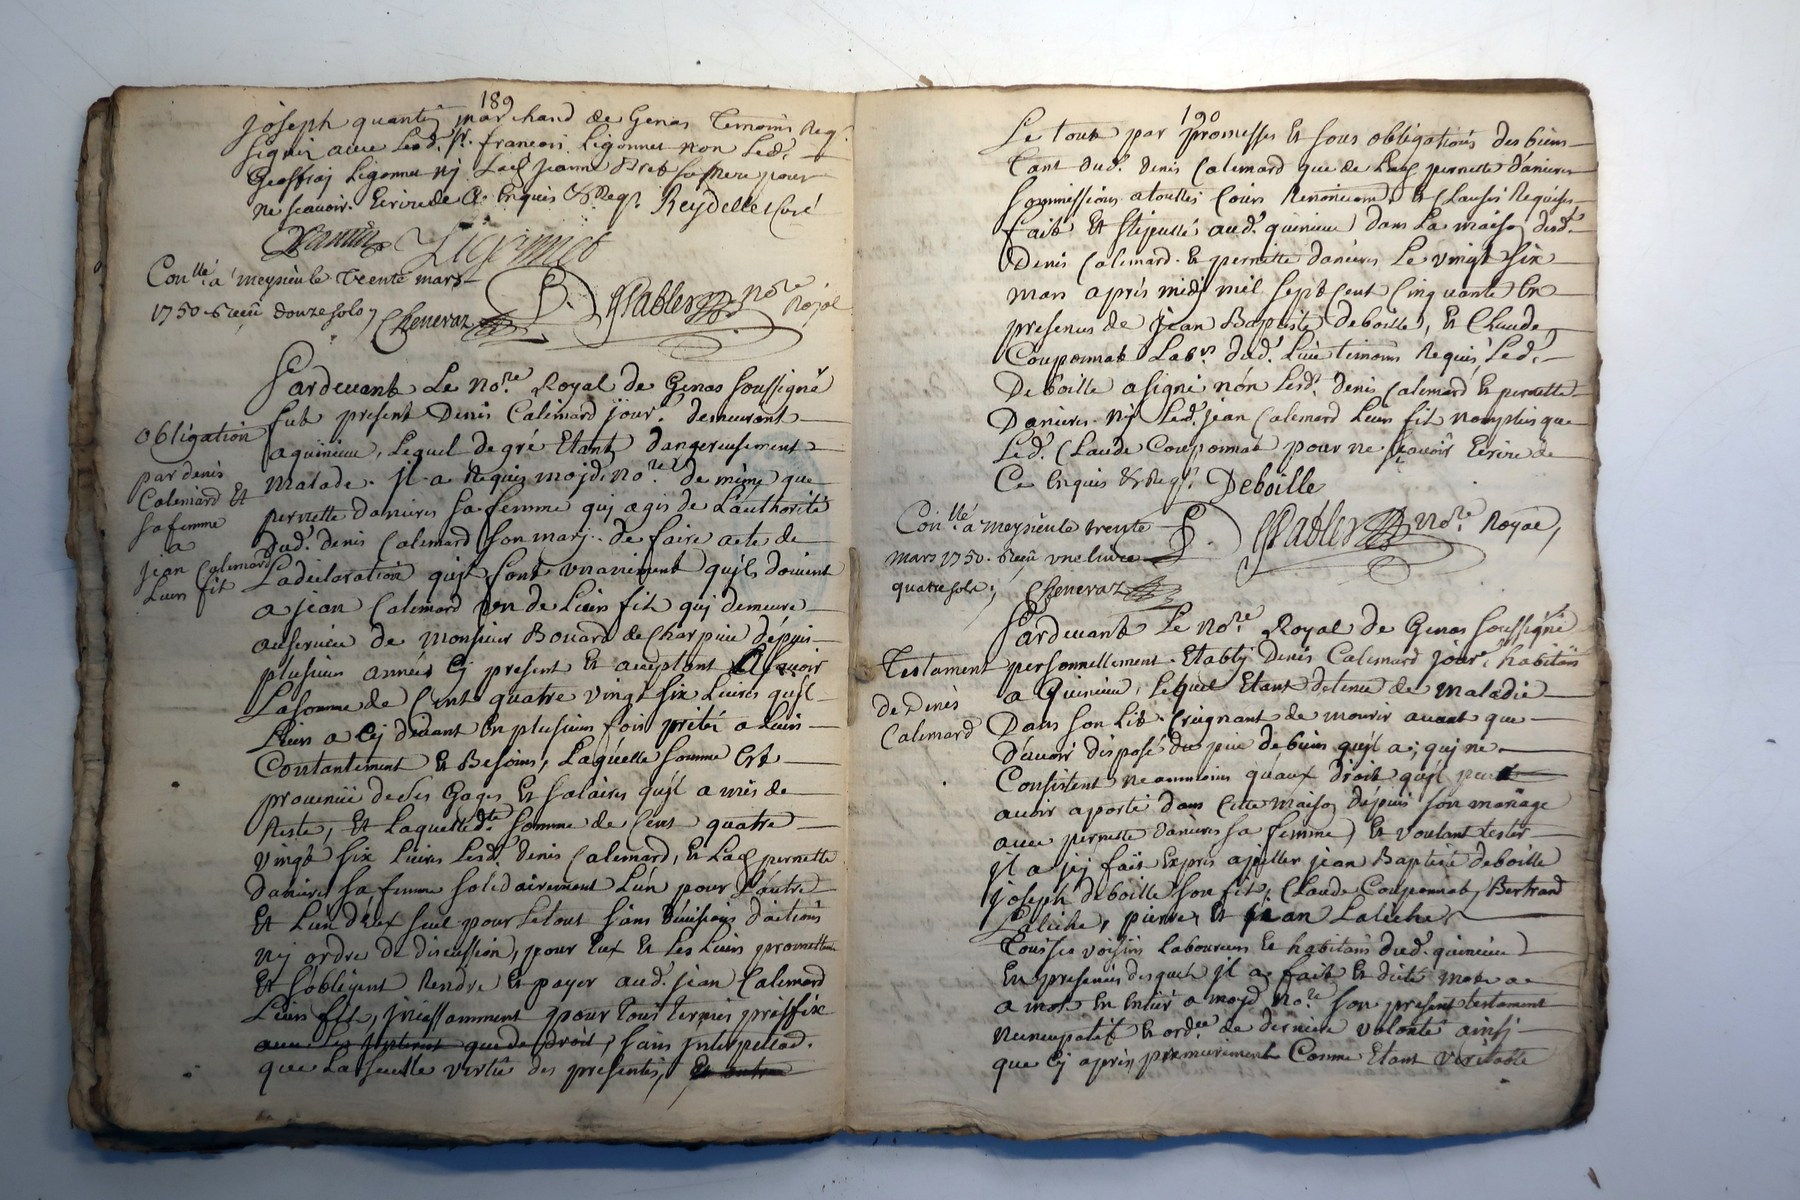 189
joseph quantin marchand de Genas temoins Req.
signéz avec Led. Sr. francois Ligonnet non Led.
Geoffraj Ligonnet nj Lad. jeanne Bret sa mere pour
ne scavoir Ecrire de Ce Enquis & Req. Reydellet Curé
Quantin Ligonnet
Conllé a meysieu le trente mars
1750 Receu douze sols Cheneraz
Pablez Nore Rojal
Pardevant Le Nore. Royal de Genas soussigné
fut present Denis Calemard jour. demeurant
aquinieu, Lequel de gré Etant dangereusement
malade. jl a Requis mojd. Nore. de même que
pernette danieres sa femme quj agis de L'authorité
dud. denis Calemard son marj. de faire acte de
La declaration qu'jls font vraiement qu'jls doivent
a jean Calemard l'un de Leurs fils quj demeure
auservice de monsieur Bouard de Charpieu dépuis
plusieurs années Cj present Et aceptant A scavoir
La somme de Cent quatre vingt six Livres qu'jl
Leurs a Cj devant En plusieurs fois prêté a Leurs
Contantement Et Besoins, Laquelle somme Est
provenüe de ses Gages Et salaires qu'jl a mis de
Reste, Et Laquelle dte somme de Cent quatre
vingt six Livres Lesd. denis Calemard, Et Lad. pernette
danieres sa femme solidairement L'ün pour L'autre
Et L'ün d'Eux seul pour Le tout sans division d'actions
nj ordre de discussion, pour Eux Et Les Leurs promettent
Et s'obligent Rendre Et payer aud. jean Calemard
Leurs fils, jncessamment pour tous termes préffix
avec les jnterest que de Droit, sans jnterpellaon.
que La seulle vertû des presentes, Et outre
obligation
par denis
Calemard Et
sa femme
a
jean Calemard
Leurs fils
190
Le tout par promesses Et sous obligations des biens
tant dud. denis Calemard que de Lad. pernette danieres
soumissions atouttes Cours Renonciaons Et Clauses Requises
fait Et stipullé aud. quinieu dans La maison desd.
Denis Calemard Et pernette danieres Le vingt six
mars après midj mil sept Cent Cinquante En
presences de jean Baptiste deboille, Et Claude
Couponnat Labrs. dud. Lieu temoins Requis Led.
Deboille a signé nón Lesd. denis Calemard Et pernette
Danieres nj Led. jean Calemard Leurs fils nomplus que
Led. Claude Couponnat pour ne scavoir Ecrire de
Ce Enquis & Req. Deboille
Conllé a meysieu le trente
mars 1750. Receu vne livre
quatre sols, Cheneraz
Pablez Nore. Royal,
Pardevant Le Nore. Royal de Genas soussigné
personnellement Etablj Denis Calemard jour. habitant
a Quinieu, Lequel Etant detenu de maladie
Dans son Lit. Craignant de mourir avant que
D'avoir disposé du peu de biens qu'jl a; quj ne
Consistent neanmoins qu'aux droits qu'jl peut
avoir aporté dans Cette maison dépuis son mariage
avec pernette danieres sa femme, Et voulant tester
jl a Cj fait Exprés apjeller jean Baptiste deboille
joseph deboille son fils, Claude Couponnat, Bertrand
Laliche, pierre, Et jean Laliche,
Tous ses voisins Laboureurs Et habitans dud. quinieu
En presences desquels jl a fait Et dicté mot a
a mot En Entier a mojd. Nore. son present testament
Nuncupatif Et ordce. de derniere volonté ainsj
que Cj aprés, premierement Comme Etant veritable
Testament
de Denis
Calemard